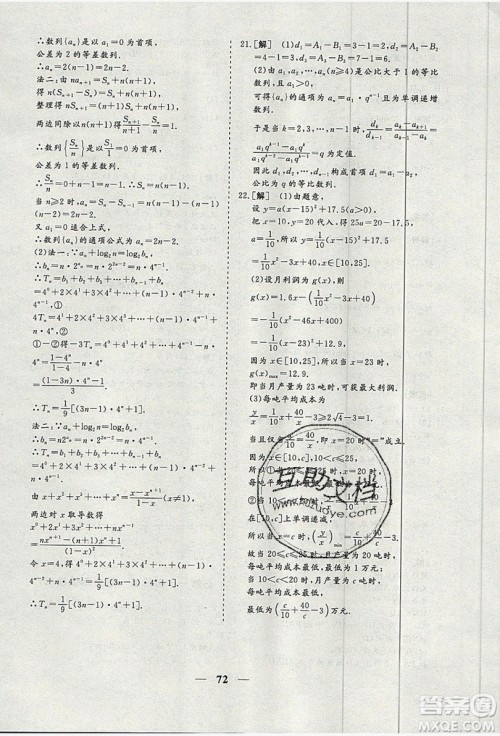 ∴数列{aₙ}是以 a₁=0 为首项,
公差为 2 的等差数列.
∴aₙ=2(n-1)=2n-2.
法二:由 aₙ=Sₙ-Sₙ₋₁
整理得
两边同除以 n(n-1)得
∴数列{Sₙ/n}是以 S₁/1=0 为首项,
公差为 1 的等差数列.
∴Sₙ/n=0+n-1=n-1.∴Sₙ=n(n-1).
当 n≥2 时 aₙ=Sₙ-Sₙ₋₁=2n-2.
又 a₁=0 适合上式,
∴数列{aₙ}的通项公式为 aₙ=2n-2.
(2)法一:∵aₙ+log₂n=log₂bₙ,
∴bₙ=n·2^{aₙ}=n·2²ⁿ⁻²=n·4ⁿ⁻¹.
∴Tₙ=b₁+b₂+b₃+⋯+bₙ₋₁+bₙ=
4⁰+2×4¹+3×4²+⋯+(n-1)·4ⁿ⁻²+n·
4ⁿ⁻¹,①
4Tₙ=4¹+2×4²+3×4³+⋯+(n-1)·
4ⁿ⁻¹+n·4ⁿ,②
①-②得-3Tₙ=4⁰+4¹+4²+⋯+4ⁿ⁻¹-
n·4ⁿ=(1-4ⁿ)/(1-4)-n·4ⁿ
=((1-3n)·4ⁿ-1)/3.
∴Tₙ=1/9[(3n-1)·4ⁿ+1].
法二:∵aₙ+log₂n=log₂bₙ,
∴bₙ=n·2^{aₙ}=n·2²ⁿ⁻²=n·4ⁿ⁻¹.
∴Tₙ=b₁+b₂+b₃+⋯+bₙ₋₁+bₙ=
4⁰+2×4¹+3×4²+⋯+(n-1)·4ⁿ⁻²+n·4ⁿ⁻¹.
两边对 x 取导数得
令 x=4,得 4⁰+2×4¹+3×4²+⋯+(n-1)·
4ⁿ⁻²+n·4ⁿ⁻¹=1/9[(3n-1)·4ⁿ+1].
∴Tₙ=1/9[(3n-1)·4ⁿ+1].
21.[解] (1)d₁=A₁-B₁=3-1=2,d₂=A₂-B₂
=4-1=3,d₃=A₃-B₃=7-1=6.
(2)由 a₁,a₂,⋯,aₙ(n≥4)是公比大于 1 的等比
数列,且 a₁>0,
可得{aₙ}的通项为 aₙ=a₁·qⁿ⁻¹且为单调递增
数列.
于是当 k=2,3,⋯,n-1 时,dₖ/dₖ₋₁=(aₖ-aₖ₊₁)/(aₖ₋₁-aₖ)=
(a₁qᵏ⁻¹-a₁qᵏ)/(a₁qᵏ⁻²-a₁qᵏ⁻¹)=q 为定值.
因此 d₁,d₂,⋯,dₙ₋₁构成首项 d₁=a₁-a₂,
公比为 q 的等比数列.
22.[解] (1)由题意,
设 y=a(x-15)²+17.5(a≠0),
把 x=10,y=20 代入,得 25a=20-17.5,
a=1/10,所以 y=1/10(x-15)²+17.5=1/10x²-3x
+40,x∈[10,25].
(2)设月利润为 g(x),则
g(x)=1.6x-(1/10x²-3x+40)
=-1/10(x²-46x+400)
=-1/10(x-23)²+12.9,
因为 x∈[10,25],所以当 x=23 时,
g(x)max=12.9.
即当月产量为 23 吨时,可获最大利润.
(3)每吨平均成本为
y/x=1/10x+40/x-3≥2√4-3=1.
当且仅当 x/10=40/x,即 x=20 时“=”成立.
因为 x∈[10,c],10<c≤25,
所以①当 20≤c≤25 时,x=20
在[10,c]上单调递减,
所以当 x=c 时,(y/x)min=c/10+40/c-3.
故当 20≤c≤25 时,月产量为 20 吨时,
每吨平均成本最低,最低为 1 万元;
当 10<c<20 时,月产量为 c 吨时,
每吨平均成本最低,
最低为(c/10+40/c-3)万元.
72
互助文档
答案圈
MXQE.COM